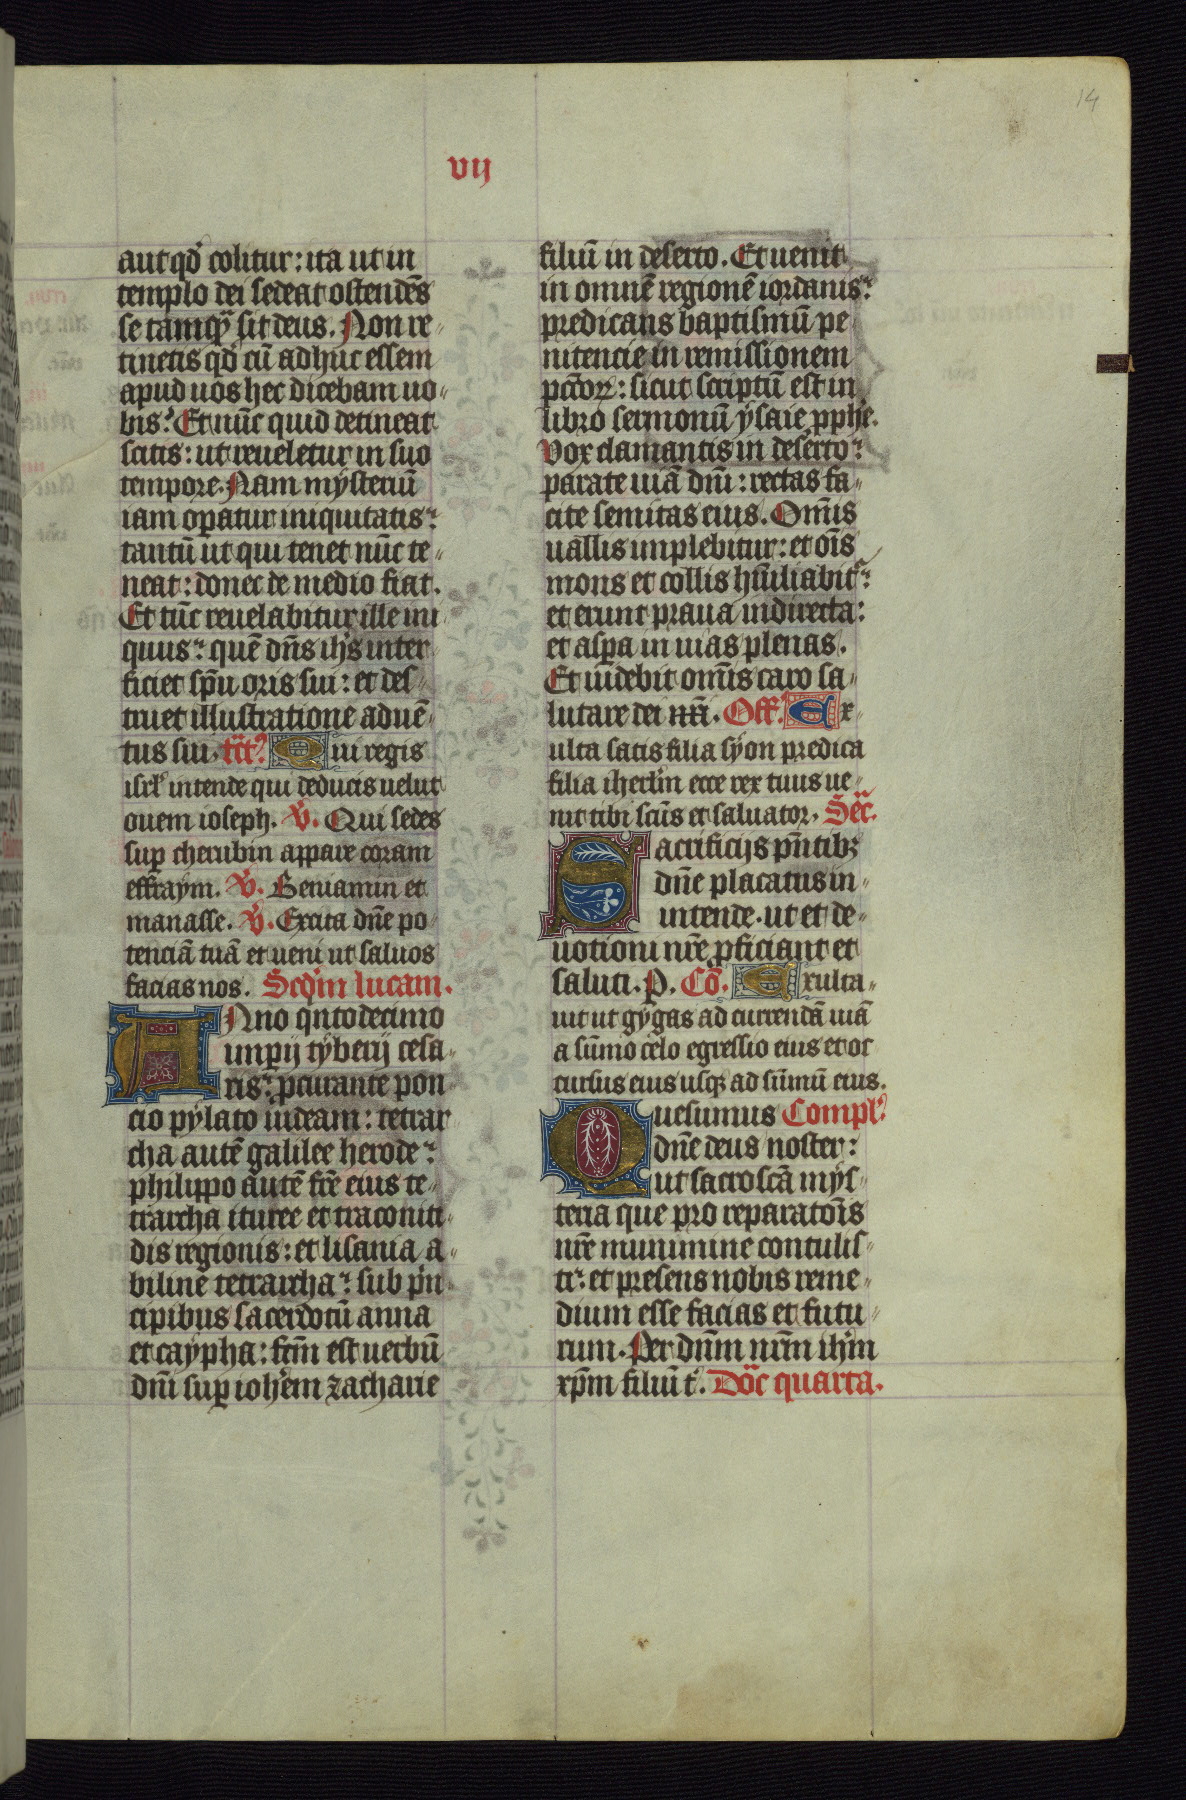 14
vij
aut qd' colitur: ita ut in
templo dei sedeat ostendēs
se tamqȝ sit deus. Non re-
tinetis qd' cū adhuc essem
apud uos hec dicebam uo-
bis? Et nūc quid detineat
scitis: ut reueletur in suo
tempore. Nam mÿsteriū
iam operatur iniquitatis:
tantū ut qui tenet nūc te-
neat: donec de medio fiat.
Et tūc reuelabitur ille ini
quus: quē dn̄s ih's inter-
ficiet sp̄u oris sui: et des-
truet illustratione aduē-
tus sui. Tct' Qui regis
isrl' intende qui deducis uelut
ouem ioseph. V. Qui sedes
sup cherubin appare coram
effraÿm. V. Beniamin et
manasse. V. Excita dn̄e po-
tenciā tuā et ueni ut saluos
facias nos. Scd'm lucam.
Anno qntodecimo
imperij tÿberij cesa-
ris: pcurante pon
cio pÿlato iudeam: tetrar
cha autē galilee herode:
philippo autē fr̄e eius te-
trarcha ituree et traconiti-
dis regionis: et lisania a-
biline tetrarcha: sub prin-
cipibus sacerdotū anna
et caÿpha: fc̄m est uerbū
dn̄i sup ioh'em zacharie
filiū in deserto. Et uenit
in omnē regionē iordanis:
predicans baptismū pe
nitencie in remissionem
pc̄cōrꝝ: sicut scriptū est in
libro sermonū ÿsaie pphe.
Vox clamantis in deserto:
parate uiā dn̄i: rectas fa-
cite semitas eius. Om̄is
uallis implebitur: et oīs
mons et collis hūiliabit':
et erunt praua in directa:
et aspa in uias plenas.
Et uidebit om̄is caro sa-
lutare dei nr̄i. Off. Ex-
ulta satis filia sÿon predica
filia iherl'm ecce rex tuus ue-
nit tibi sc̄us et saluator. Sec̄.
Sacrificijs pn̄tibȝ
dn̄e placatus in-
intende. ut et de-
uotioni nr̄e pficiant et
saluti. P. Cō. Exulta-
uit ut gÿgas ad currendā uiā
a sūmo celo egressio eius et oc
cursus eius usqȝ ad sūmū eius.
Quesumus Compl'
dn̄e deus noster:
ut sacrosc̄a mÿs-
teria que pro reparatōis
nr̄e munimine contulis-
ti: et presens nobis reme-
dium esse facias et futu-
rum. Per dn̄m nr̄m ih'm
xp̄m filiū t'. Dōc quarta.